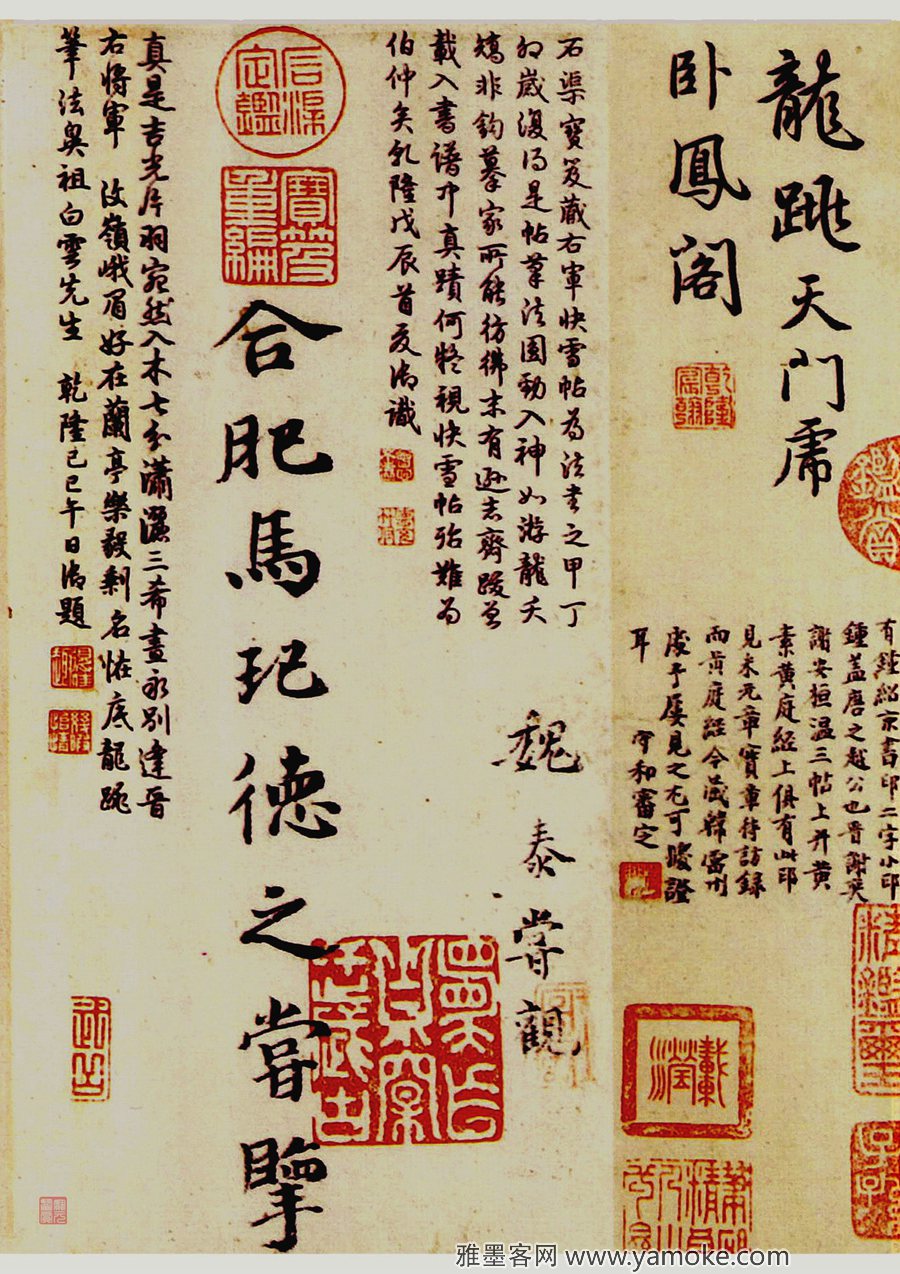 龍跳天門
卧鳳閣
乾隆宸翰
有鍾紹京書印二字小印
鍾蓋唐之越公也晉謝奕
謝安桓温三帖上并黄
素黄庭經上俱有此印
見米元章寳章待訪録
而黄庭經今藏韓
處予屢見之尤可證
耳
審定
石渠寶笈藏右軍快雪帖為法書之甲丁
卯歲復得是帖筆法圓勁入神如游龍夭
矯非鈎摹家所能彷彿末有遜志齋跋並
載入書譜中真蹟何疑視快雪帖殆難為
伯仲矣乾隆戊辰首夏御識
魏泰嘗觀
石渠定鑑
寶笈重編
合肥馬玘德之嘗
真是吉光片羽宛然入木七分瀟灑三希晝永別逢晉
右將軍 汶嶺峨眉好在蘭亭樂毅剩名恠底龍跳
筆法與祖白雲先生 乾隆己巳午日御題
雅墨客网 www.yamoke.com